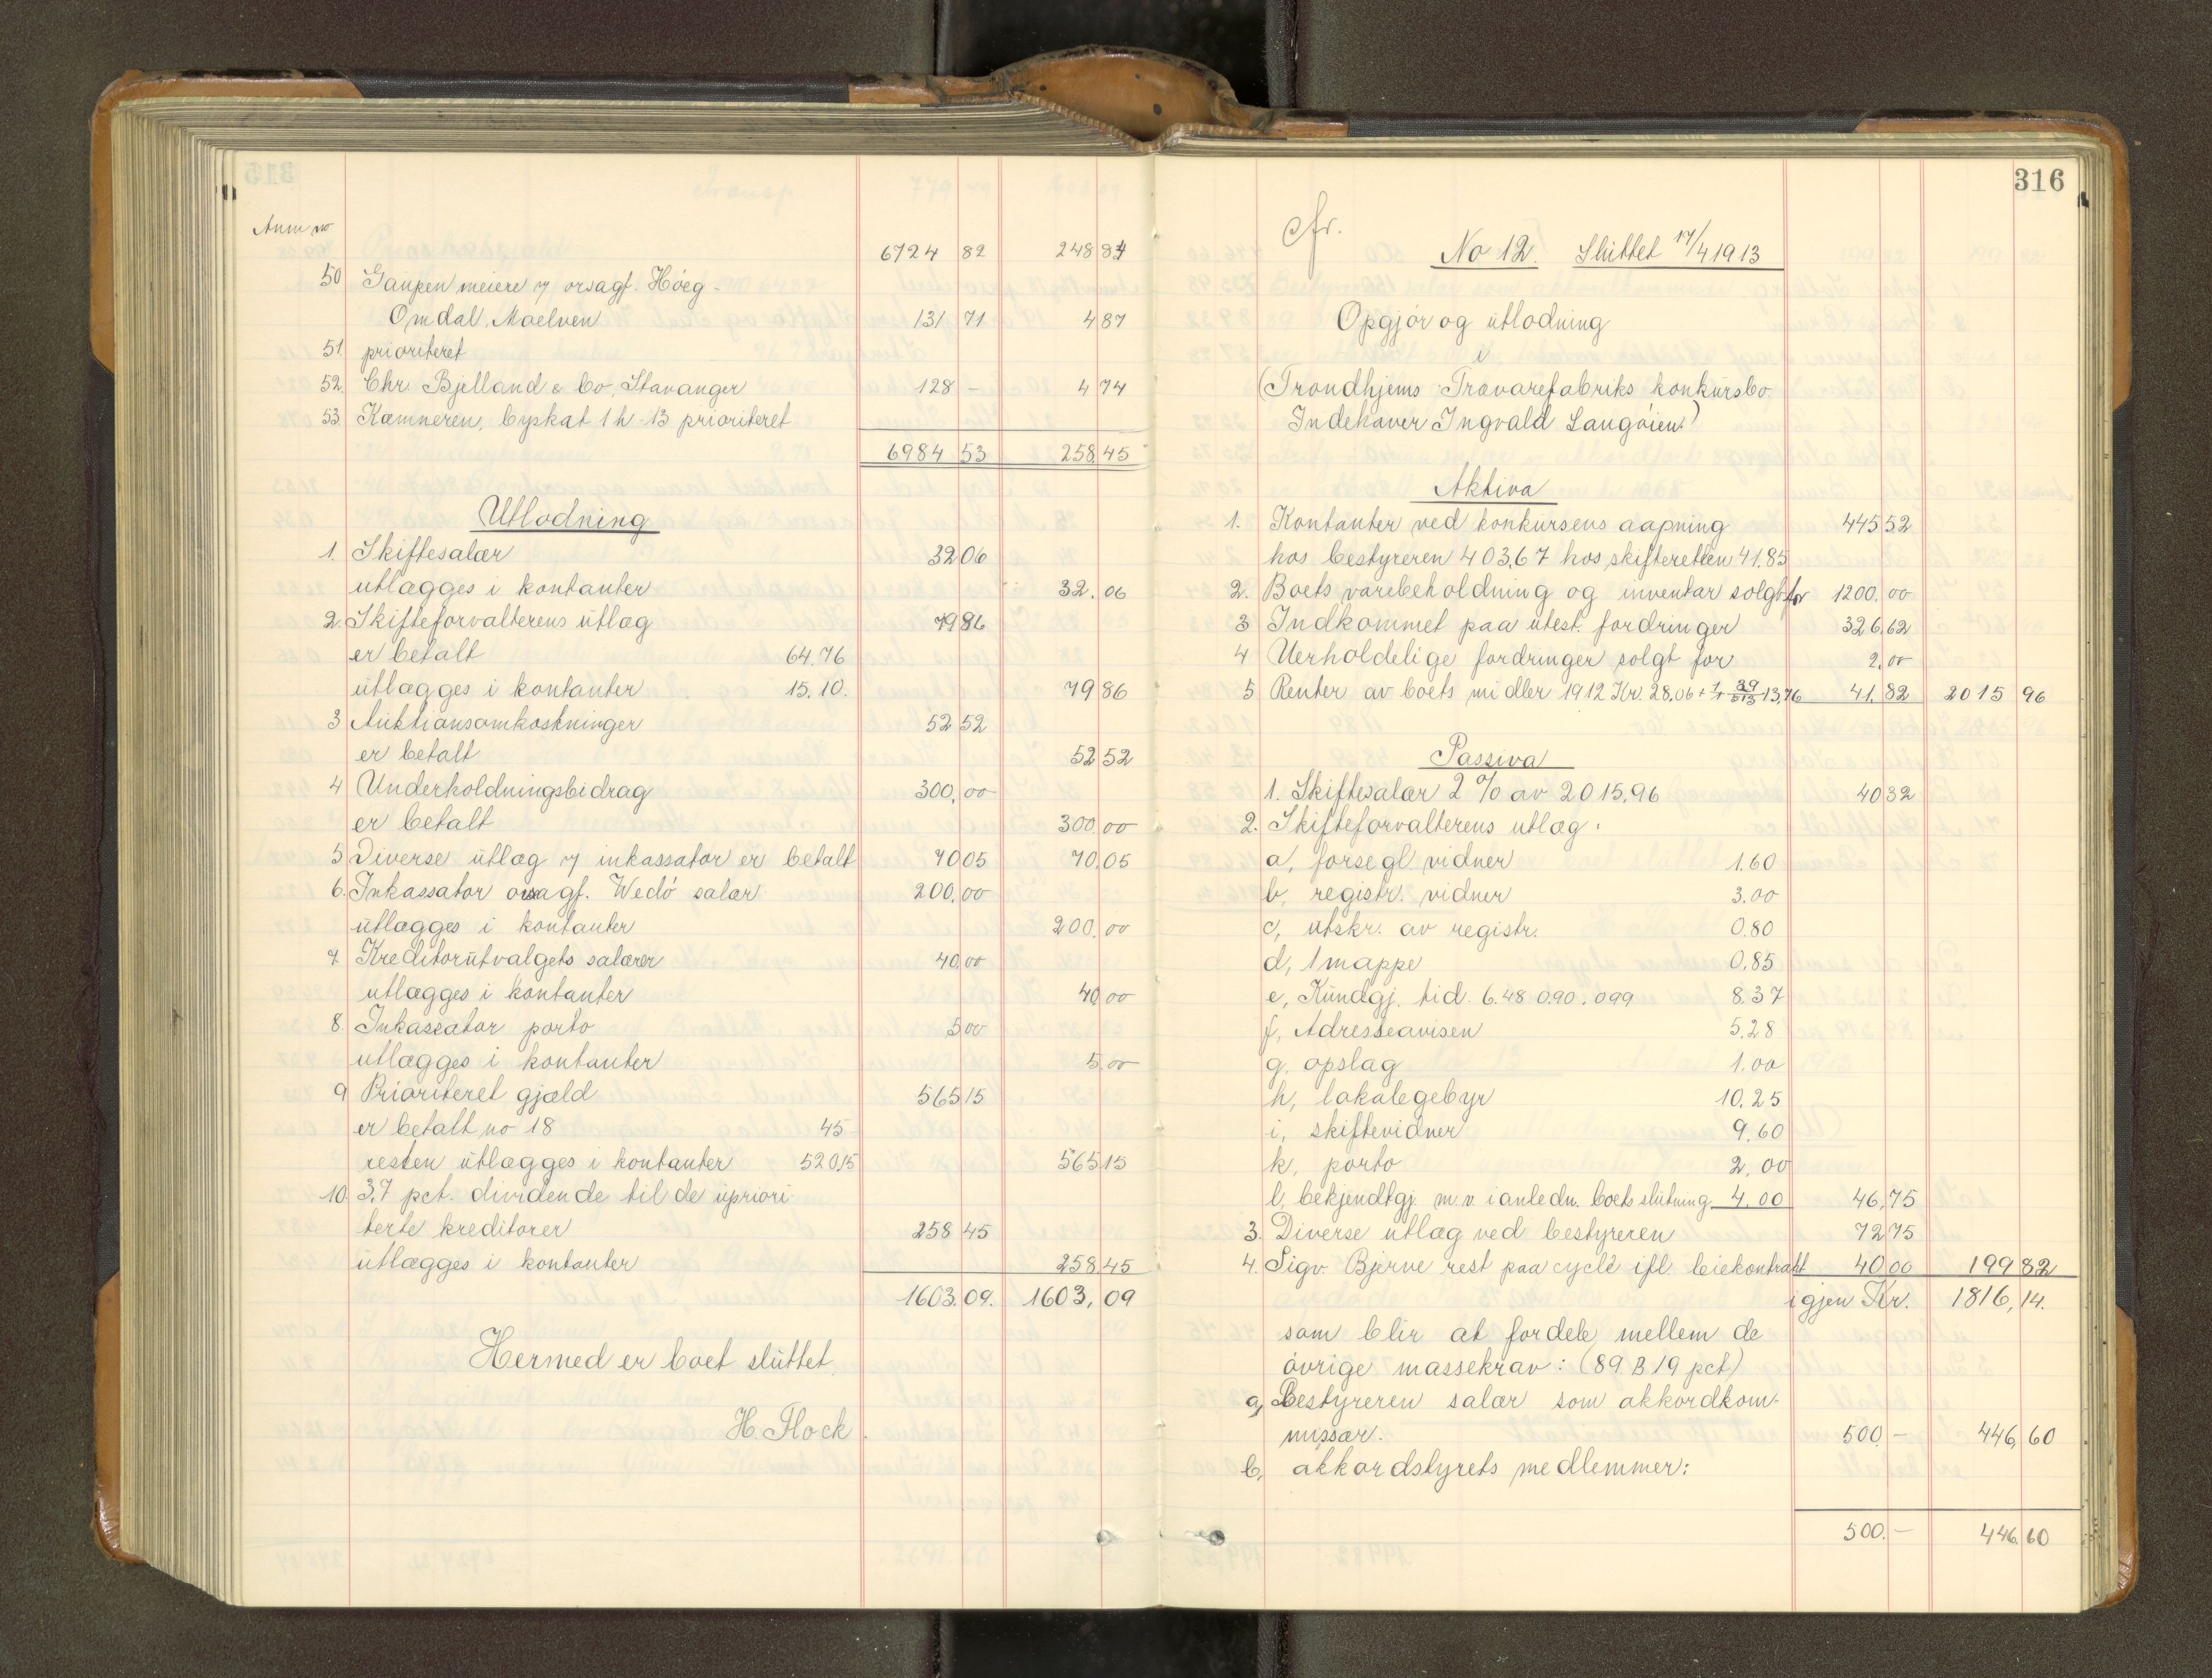 Anm no
6724 82 248 84
50 Gaupen meieri v orsagf. Höeg-
Omdal, Moelven 131 71 4 87
51 prioriteret
52. Chr. Bjelland & Co, Stavanger 128 - 4 74
53. Kæmneren, byskat 1 h -13 prioriteret
6984 53 258 45
Utlodning
1. Skiftesalær 32 06
utlægges i kontanter 32.06
2. Skifteforvalterens utlæg 79 86
er betalt 64.76
utlægges i kontanter 15.10. 79 86
3 Auktionsomkostninger 52 52
er betalt 52 52
4 Underholdningsbidrag 300,00
er betalt 300 00
5 Diverse utlæg v inkassator er betalt 70 05 70,05
6. Inkassator orsagf. Wedö salær 200,00
utlægges i kontanter 200,00
7 Kreditorutvalgets salærer 40,00
utlægges i kontanter 40 00
8. Inkassator porto 5 00
utlægges i kontanter 5,00
9 Prioriteret gjæld 565 15
er betalt no 18 45
resten utlægges i kontanter 520,15 565 15
10. 3,7 pct. dividende til de upriori
terte kreditorer 258 45
utlægges i kontanter 258 45
1603.09. 1603,09
Hermed er boet sluttet.
H. Flock.
316
cfr.
No 12. Sluttet 17/4 1913
Opgjör og utlodning
i
(Trondhjems Trævarefabriks konkursbo.
Indehaver Ingvald Langöien.)
Aktiva
1. Kontanter ved konkursens aapning 445 52
hos bestyreren 403,67 hos skifteretten 41.85
2. Boets varebeholdning og inventar solgt for 1200.00
3 Indkommet paa utest. fordringer 326,62
4 Uerholdelige fordringer solgt for 2,00
5 Renter av boets midler 1912 Kr. 28,06 + 29/513 13,76 41.82 2015 96
Passiva
1. Skiftesalær 2 % av 2015,96 40 32
2. Skifteforvalterens utlæg.
a, forsegl. vidner 1.60
b, registr. vidner 3.00
c, utskr. av registr. 0.80
d, 1 mappe 0,85
e, Kundgj. tid. 6.48 0.90. 0 99 8.37
f, Adresseavisen 5.28
g, opslag 1.00
h, lokalegebyr 10.25
i, skiftevidner 9.60
k, porto 2,00
l, bekjendtgj. m.v. i anledn. boets slutning 4,00 46,75
3. Diverse utlæg ved bestyreren 72 75
4. Sigv. Bjerve rest paa cycle ifl. leiekontrakt 40 00 199 82
igjen Kr. 1816,14.
som blir at fordele mellem de
övrige massekrav: (89 B 19 pct)
a, Bestyreren salær som akkordkom-
missær. 500.- 446,60
b, akkordstyrets medlemmer:
500.- 446.60